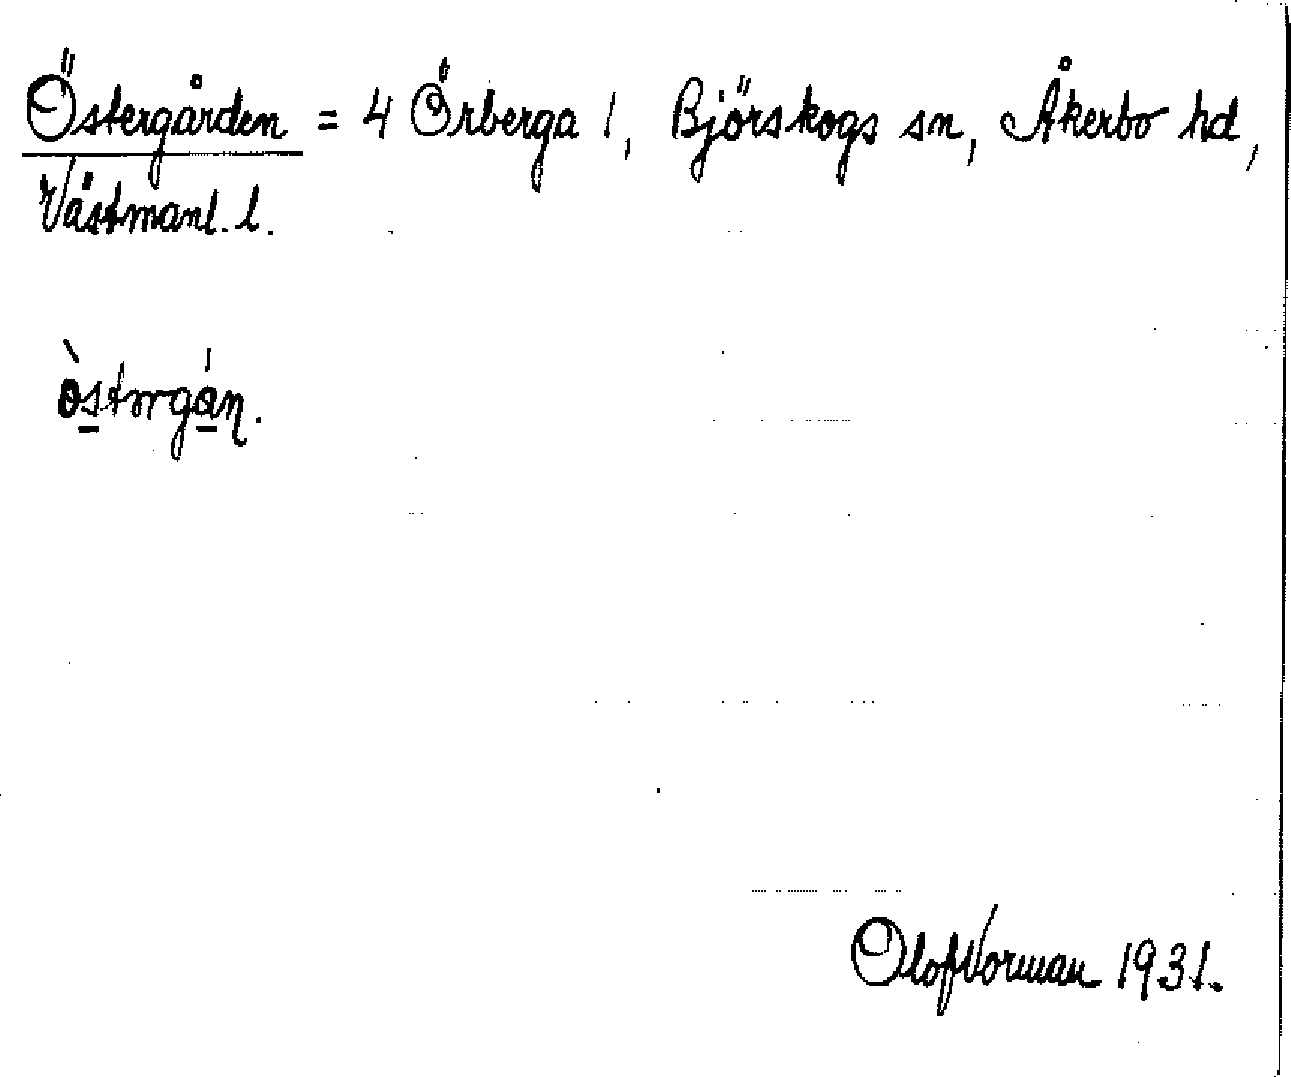 Östergården = 4 Örberga 1, Björskogs sn, Åkerbo hd,
Västmanl. l.
Olof Norman 1931.